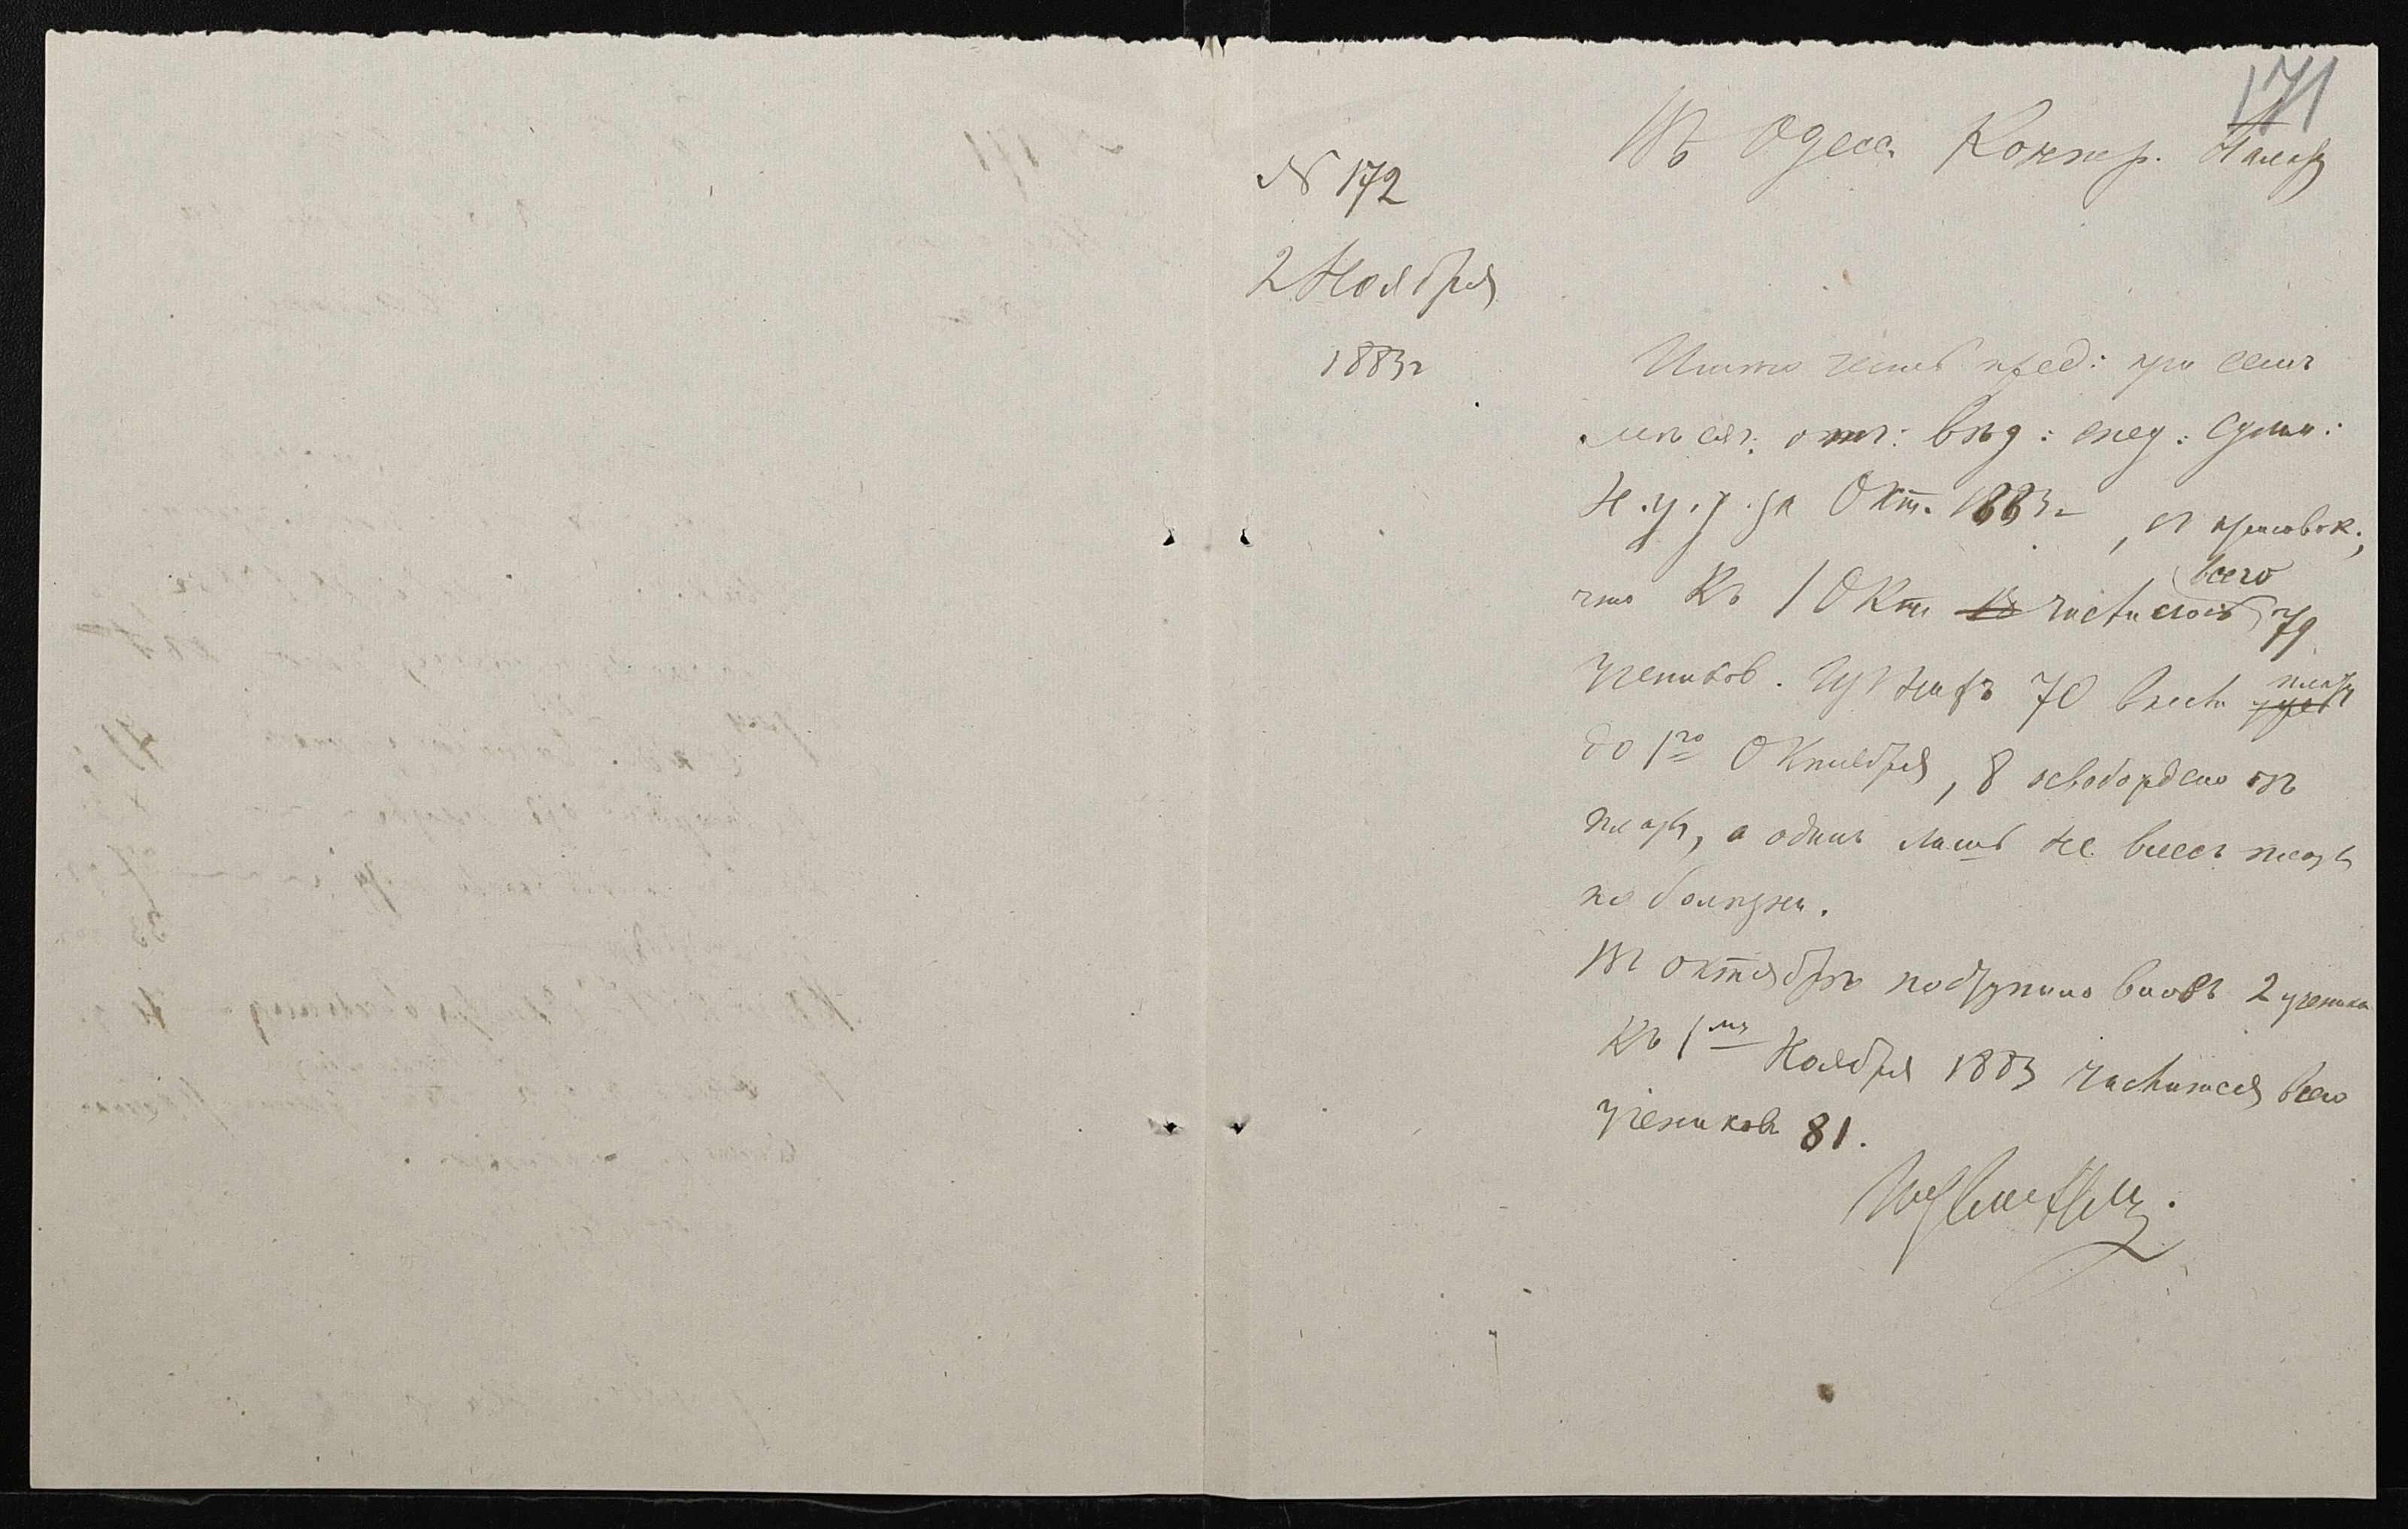 171
Въ Одесс. Контр. Палату
№ 172
2 Ноября
1883 г
Имѣю честь пред: при семъ
мѣсяч: отч: вѣд: спец: Сумм:
Н.у.у. за Окт. 1883 г, съ присовок.,
что Къ 1 Окт. числилось всего 79
учениковъ. Изъ нихъ 70 внесли плату
до 1го Октября, 8 освобождено отъ
платы, а одинъ лишь не внесъ платы
по болѣзни.
Въ октябрѣ поступило вновь 2 ученика
Къ 1му Ноября 1883 числится всего
учениковъ 81.